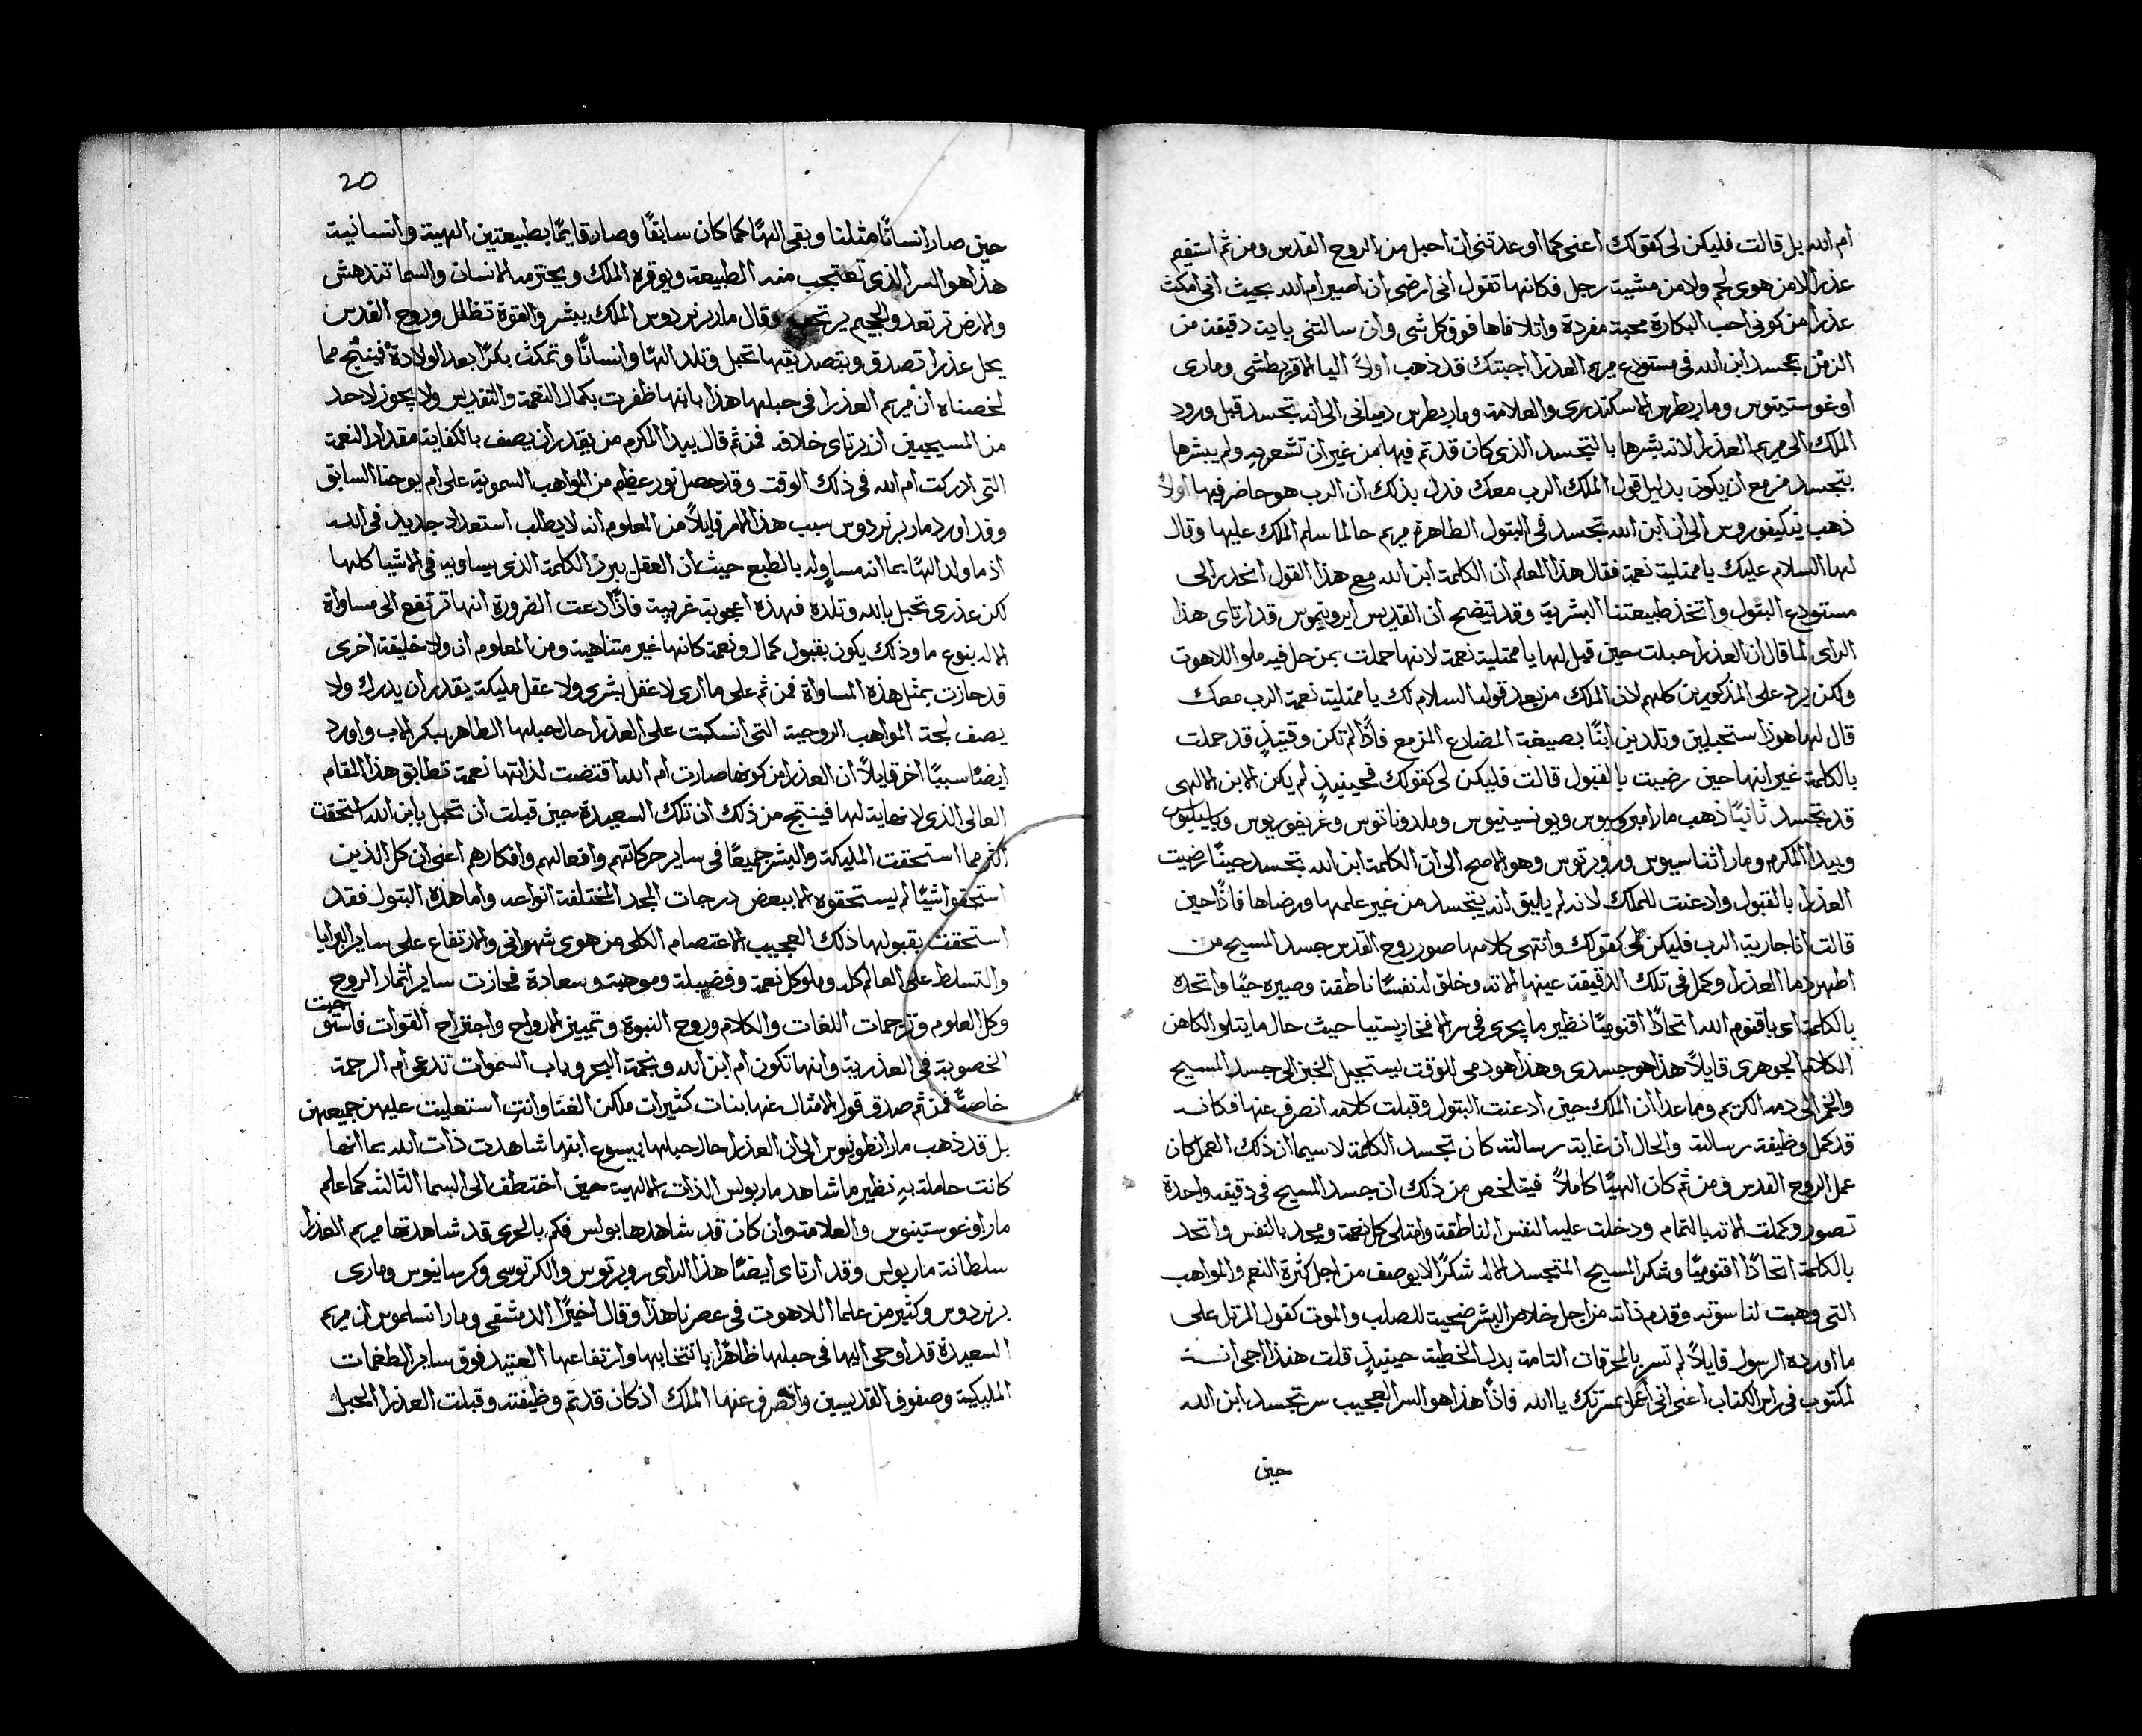 ام الله بل قالت فليكن لي كقولك اعني كما اوعدتني ان احبل من الروح القدس ومن ثم استقيم
عذرا لا من هوى لحم ولا من مشيت رجل فكانها تقول اني ارضى ان اصير ام الله بحيث اني امكث
عذرا من كوني احب البكارة محبة مفردة واتلافاها فوق كل شي وان سالتني بايت دقيقة من
الزمن تجسد ابن الله في مستودع مريم العذرا اجبتك قد ذهب اولاً اليا الاقريطشي وماري
اوغوستينوس ومار بطرس الاسكندري والعلامة ومار بطرس دمياني الى انه تجسد قبل ورود
الملك الى مريم العذرا لانه بشرها بالتجسد الذي كان قد تم فيها من غير ان تشعر به ولم يبشرها
بتجسد مزمع ان يكون بدليل قول الملك الرب معك فدل بذلك ان الرب هو حاضر فيها اولاً
ذهب نيكيفوروس الى ان ابن الله تجسد في البتول الطاهرة مريم حالما سلم الملك عليها وقال
لها السلام عليك يا ممتلية نعمة فقال هذا المعلم ان الكلمة ابن الله مع هذا القول انحدر الى
مستودع البتول واتخذ طبيعتنا البشرية وقد يتضح ان القديس ايرونيموس قد ارتاى هذا
الراى لما قال ان العذرا حبلت حين قيل لها يا ممتلية نعمة لانها حملت بمن حل فيه ملو اللاهوت
ولكن يرد على المذكورين كلهم لان الملك من بعد قوله السلام لك يا ممتلية نعمة الرب معك
قال لها هوذا ستحبلين وتلدين ابنًا بصيغة المضارع المزمع فاذًا لم تكن وقتيذٍ قد حملت
بالكلمة غير انها حين رضيت بالقبول قالت فليكن لي كقولك فحينيذٍ لم يكن الابن الالهي
قد تجسد ثانيًا ذهب مار امبروسيوس ويونسينيوس وملدوناتوس وغريغوريوس وباسيليوس
وبيدا المكرم ومار اثناسيوس وروبرتوس وهو الاصح الى ان الكلمة ابن الله تجسد حينًا رضيت
العذرا بالقبول وادعنت للملك لانه لم يليق انه يتجسد من غير علمها ورضاها فاذًا حين
قالت انا جارية الرب فليكن لي كقولك وانتهى كلامها صور روح القدس جسد المسيح من
اطهر دما العذرا وكمل في تلك الدقيقة عينها الاته وخلق له نفسًا ناطقة وصيره حيًا واتحده
بالكلمة اي باقنوم الله اتحادًا اقنوميًا نظير ما يجري في سر الافخارستيا حيث حال ما يتلو الكاهن
الكلام الجوهري قايلاً هذا هو جسدي وهذا هو دمي للوقت يستحيل الخبز الى جسد المسيح
والخمر الى دمه الكريم وما عدا ان الملك حين ادعنت البتول وقبلت كلامه انصرف عنها فكانه
قد كمل وظيفة رسالته والحال ان غاية رسالته كان تجسد الكلمة لا سيما ان ذلك العمل كان
عمل الروح القدس فمن ثم كان الهيًا كاملاً فيتلخص من ذلك ان جسد المسيح في دقيقة واحدة
تصور وكملت الاته بالتمام ودخلت عليه النفس الناطقة وامتلى كل نعمة ومجد بالنفس واتحد
بالكلمة اتحادًا اقنوميًا وشكر المسيح المتجسد الاله شكرًا لا يوصف من اجل كثرة النعم والمواهب
التي وهبت لناسوته وقدم ذاته من اجل خلاص البشر ضحية للصلب والموت كقول المرتل على
ما اورده الرسول قايلاً لم تسر بالمحرقات التامة بدل الخطية حينيذٍ قلت هنذا اجي انه
لمكتوب في راس الكتاب اعني اني اعمل بمسرتك يا الله فاذًا هذا هو السر العجيب سر تجسد ابن الله
حين
20
حين صار انسانًا مثلنا وبقى الهًا كما كان سابقًا وصار قايمًا بطبيعتين الهية وانسانية
هذا هو السر الذي تعتجب منه الطبيعة ويوقره الملك ويحترمه الانسان والسما تندهش
والارض ترتعد والجحيم يرتجف وقال مار برنردوس الملك يبشر والقوة تظلل وروح القدس
يحل عذرا تصدق وبتصديقها تحبل وتلد الهًا وانسانًا وتمكث بكرًا بعد الولادة فينتج مما
لخصناه ان مريم العذرا في حبلها هذا بابنها ظفرت بكمال النعمة والتقديس ولا يجوز لاحد
من المسيحيين ان يرتاى خلافه فمن ثم قال بيدا المكرم من يقدر ان يصف بالكفاية مقدار النعمة
التي ادركت ام الله في ذلك الوقت وقد حصل نور عظيم من المواهب السموية على ام يوحنا السابق
وقد اورد مار برنردوس سبب هذا الامر قايلاً من المعلوم انه لا يطلب استعداد جديد في الله
اذ ما ولد الهًا بما انه مساوٍ له بالطبع حيث ان العقل يبرز الكلمة الذي يساويه في الاشيا كلها
لكن عذرى تحبل بالله وتلده فهذه اعجوبة غريبة فاذًا دعت الضرورة انها ترتفع الى مساواة
الاله بنوع ما وذلك يكون بقبول كمال ونعمة كانها غير متناهية ومن المعلوم انه ولا خليقة اخرى
قد حازت بمثل هذه المساواة فمن ثم على ما ارى لا عقل بشري ولا عقل مليكة يقدر ان يدرك ولا
يصف لجة المواهب الروحية التي انسكبت على العذرا حال حبلها الطاهر ببكر الاب واورد
ايضًا سببًا اخر قايلاً ان العذرا من كونها صارت ام الله اقتضت لذاتها نعمة تطابق هذا المقام
العالي الذي لا نهاية لها فينتج من ذلك ان تلك السعيدة حين قبلت ان تحبل بابن الله استحقت
اكثر مما استحقت المليكة والبشر جميعًا في ساير حركاتهم وافعالهم وافكارهم اعني ان كل الذين
استحقوا شيًا لم يستحقوه الا ببعض درجات المجد المختلفة انواعه واما هذه البتول فقد
استحقت بقبولها ذلك العجيب الاعتصام الكلي من هوى شهواني والارتفاع على ساير البرايا
والتسلط على العالم كله وملو كل نعمة وفضيلة وموهبة وسعادة فحازت ساير اثمار الروح
وكل العلوم وترجمات اللغات والكلام وروح النبوة وتمييز الارواح واجتراح القوات فاستوجبت
الخصوبة في العذرية وانها تكون ام ابن الله ونجمة البحر وباب السموات تدعى ام الرحمة
خاصةً فمن ثم صدق قول الامثال عنها بنات كثيرات ملكن الغنا وانتِ استعليت عليهن جميعهن
بل قد ذهب مار انطونيوس الى ان العذرا حال حبلها بيسوع ابنها شاهدت ذات الله بما انها
كانت حاملة به نظير ما شاهد مار بولس الذات الالهية حين اختطف الى السما الثالثة كما علم
مار اوغوستينوس والعلامة وان كان قد شاهدها بولس فكم بالحرى قد شاهدتها مريم العذرا
سلطانة مار بولس وقد ارتاى ايضًا هذا الراى روبرتوس والكرتوسي وكرسانيوس وماري
برنردوس وكثير من علما اللاهوت في عصرنا هذا وقال اخيرًا الدمشقي ومار انسلموس ان مريم
السعيدة قد اوحى اليها في حبلها ظاهرًا بانتخابها وارتفاعها العتيد فوق ساير الطغمات
المليكية وصفوف القديسين وانصرف عنها الملك اذ كان قد تم وظيفته وقبلت العذرا المحبل